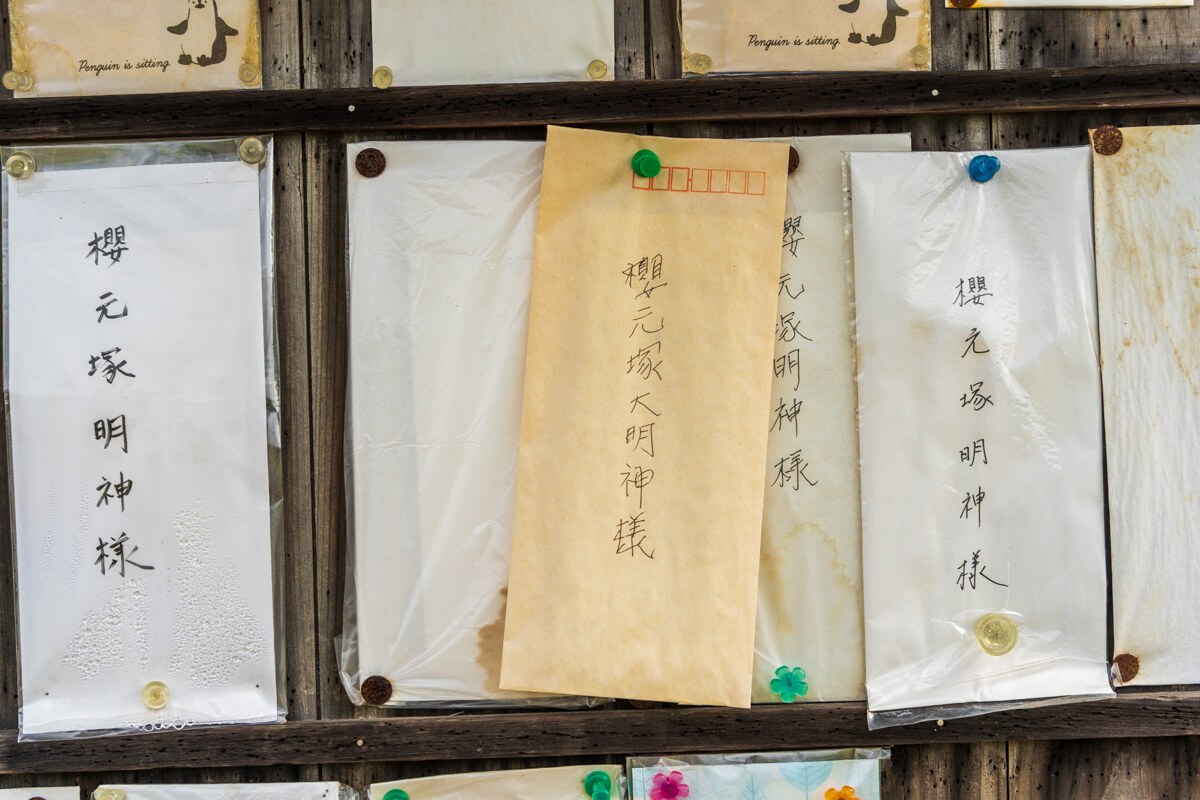 Penguin is sitting.
Penguin is sitting.
櫻元塚明神様
櫻元塚大明神様
櫻元塚明神様
櫻元塚明神様